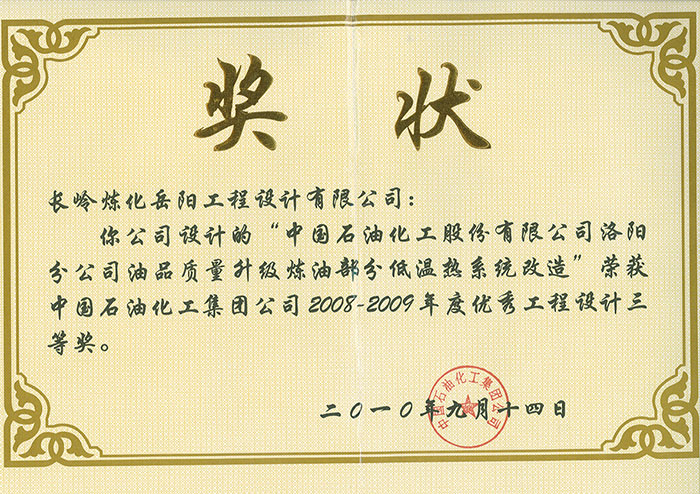 奖 状
长岭炼化岳阳工程设计有限公司：
你公司设计的“中国石油化工股份有限公司洛阳
分公司油品质量升级炼油部分低温热系统改造”荣获
中国石油化工集团公司2008-2009年度优秀工程设计三
等奖。
中国石油化工集团公司
二〇一〇年九月十四日